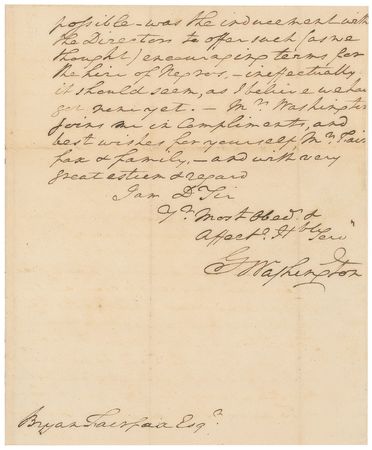 possible – was the inducement with
the Directors to offer such (as we
thought) encouraging terms for
the hire of Negros. – ineffectually
it should seem, as I believe we have
got none yet. – Mrs. Washington
joins me in compliments, and
best wishes for yourself, Mrs. Fair
fax & family, – and with very
great esteem & regard
I am Dr Sir
Yr. Most Obedt. &
Affecte. Hble Servt
G Washington
Bryan Fairfax Esqr.